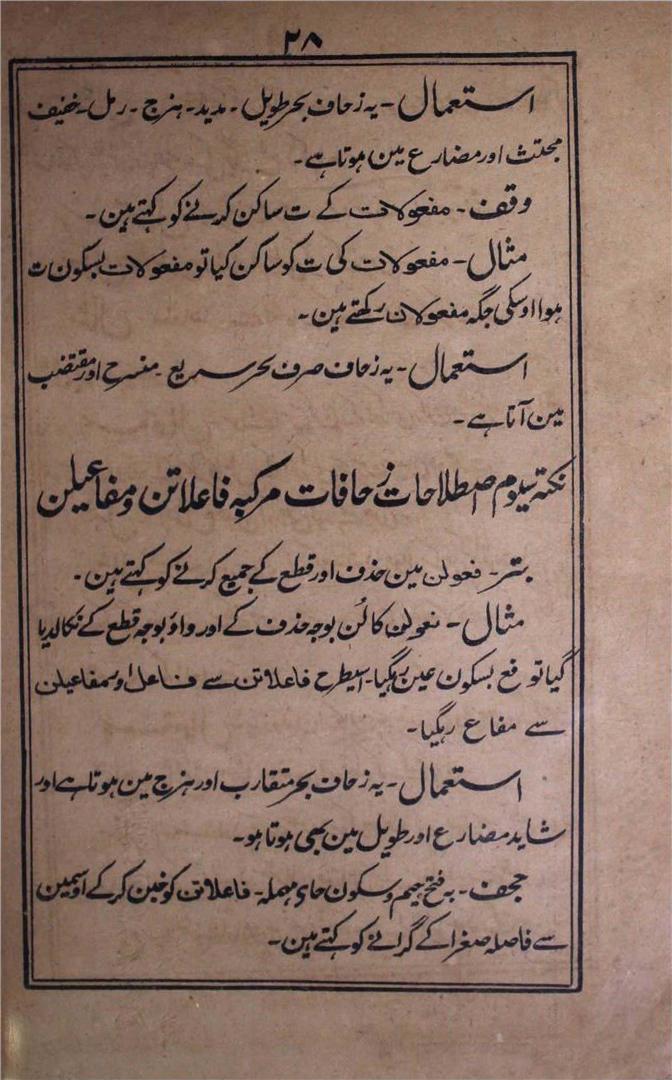 ۲۸
استعمال - یہ زحاف بحر طویل - مدید - ہزج - رمل - خفیف
مجتث اور مضارع مین ہوتا ہے -
وقف - مفعولات کے ت ساکن کرنے کو کہتے ہین -
مثال - مفعولات کی ت کو ساکن کیا تو مفعولات بسکون ت
ہوا اوسکی جگہ مفعولان رکھتے ہین -
استعمال - یہ زحاف صرف بحر سریع - منسرح اور مقتضب
مین آتا ہے -
نکتہ سیوم اصطلاحات زحافات مرکبہ فاعلاتن و مفاعیلن
بتر - فعولن مین حذف اور قطع کے جمیع کرنے کو کہتے ہین -
مثال - فعولن کا لُن بوجہ حذف کے اور واؤ بوجہ قطع کے نکالدیا
گیا تو فع بسکون عین رہگیا - اسیطرح فاعلاتن سے فاعل اوسمفاعیلن
سے مفاع رہگیا -
استعمال - یہ زحاف بحر متقارب اور ہزج مین ہوتا ہے اور
شاید مضارع اور طویل مین بھی ہوتا ہو -
جحف - بہ فتح جیم و سکون حای مہملہ - فاعلاتن کو خبن کرکے اوسمین
سے فاصلہ صغرا کے گرانے کو کہتے ہین -